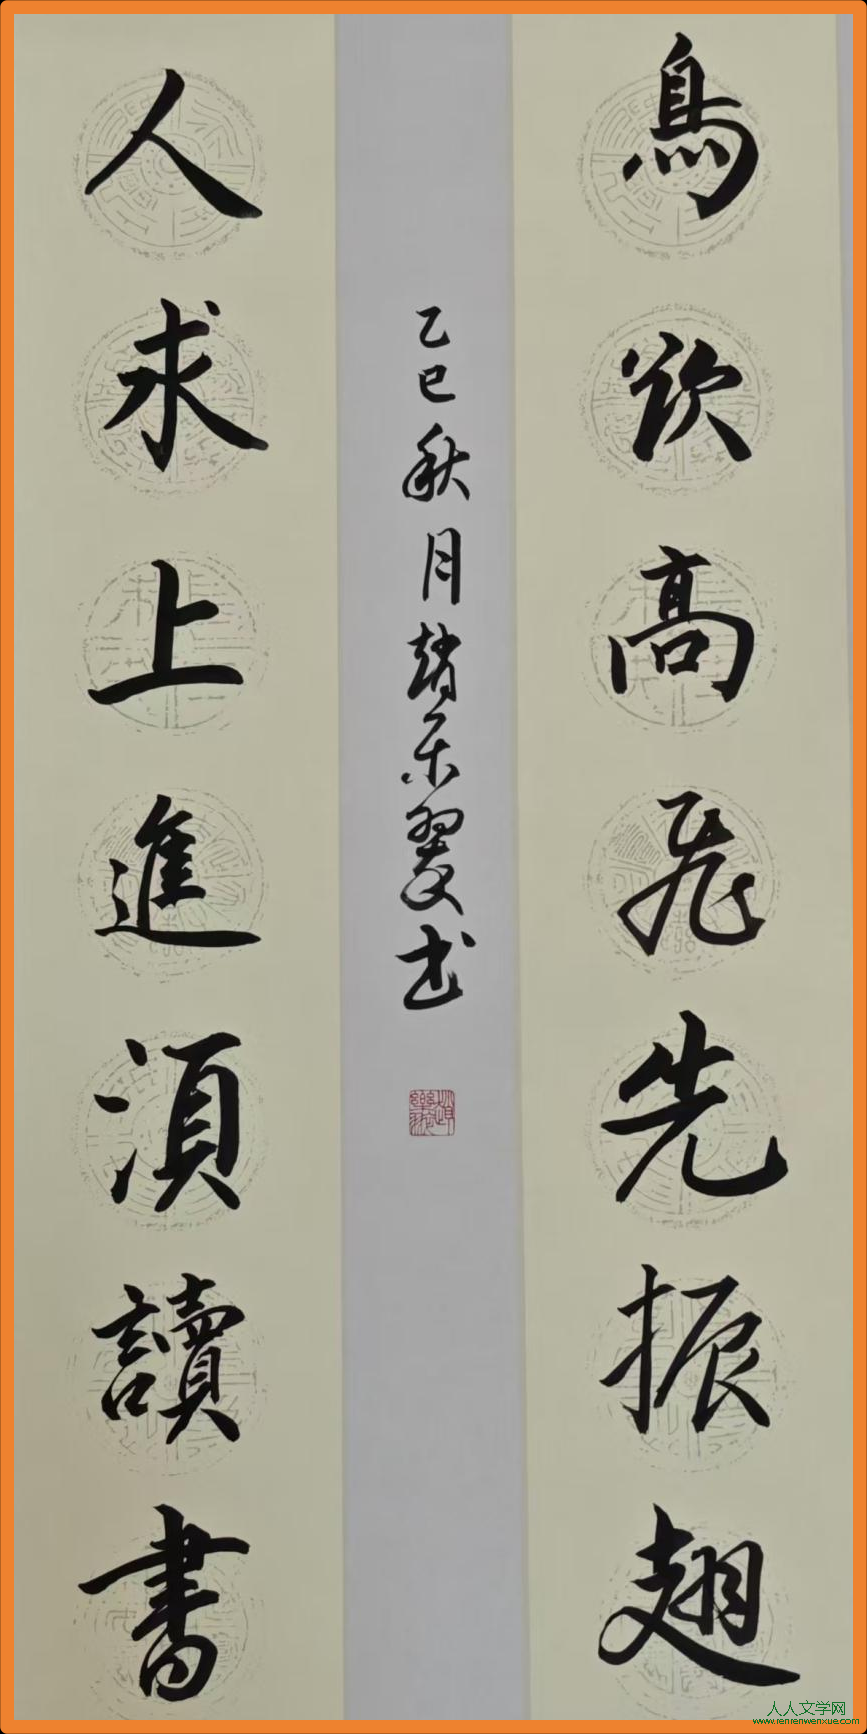 鳥欲高飛先振翅
人求上進須讀書
乙巳秋月趙樂翠書
人人文学网
www.renrenwenxue.com